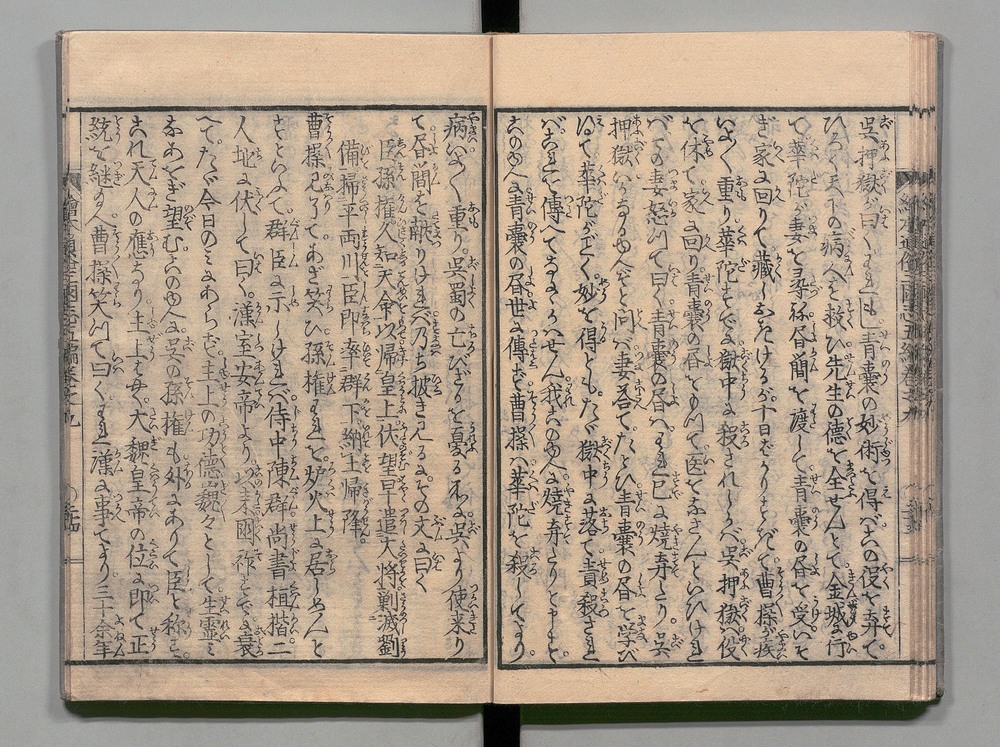 呉押獄が曰くわれもし青嚢の妙術を得バこの役を弃て
ひろく天下の病人を救ひ先生の徳を全せんとて金城に行
て華陀が妻を尋ね昏間を渡して青嚢の昏を受いそ
ぎ家に回りて蔵しおきけるが十日ばかりすぎて曹操が疾
いよく重り華陀もすでに獄中に殺されしかバ呉押獄ハ役
を休て家に回り青嚢の昏をもつて医をなさんといひけれ
バその妻怒つて曰く青嚢の昏ハわれ已に焼弃たり呉
押獄いかなるゆへぞと問バ妻荅てたとひ青嚢の昏を学び
得て華陀が如く妙を得とも
たゞ獄中に落て責殺され
バこれを傳へてなにかせん我このゆへに焼弃たりと申す
このゆへに青嚢の昏世に傳ハらず曹操ハ華陀を殺してより
病いよく重り呉蜀の亡びざるを憂る所に呉より使来り
て昏間を献りけれバ乃ち披き見るにその文に曰く
臣孫權久知天命以帰皇上伏望早遣大将剿滅劉
備掃平両川臣即率群下納土帰降
曹操見了てあざ笑ひ孫權われを炉火上に居しめんと
するとて群臣に示しけれバ侍中陳群尚書桓楷二
人地に伏して曰く漢室安帝より以来國祚すでに衰
へてたゞ今日のミにあらず主上の功徳巍々として生霊ミ
なあをぎ望むこのゆへに呉の孫權も外にありて臣と称す
これ天人の應なり主上はやく大魏皇帝の位に即て正
統を継玉へ曹操笑つて曰くわれ漢に事てより三十余年
繪本通俗三國志五編巻之九